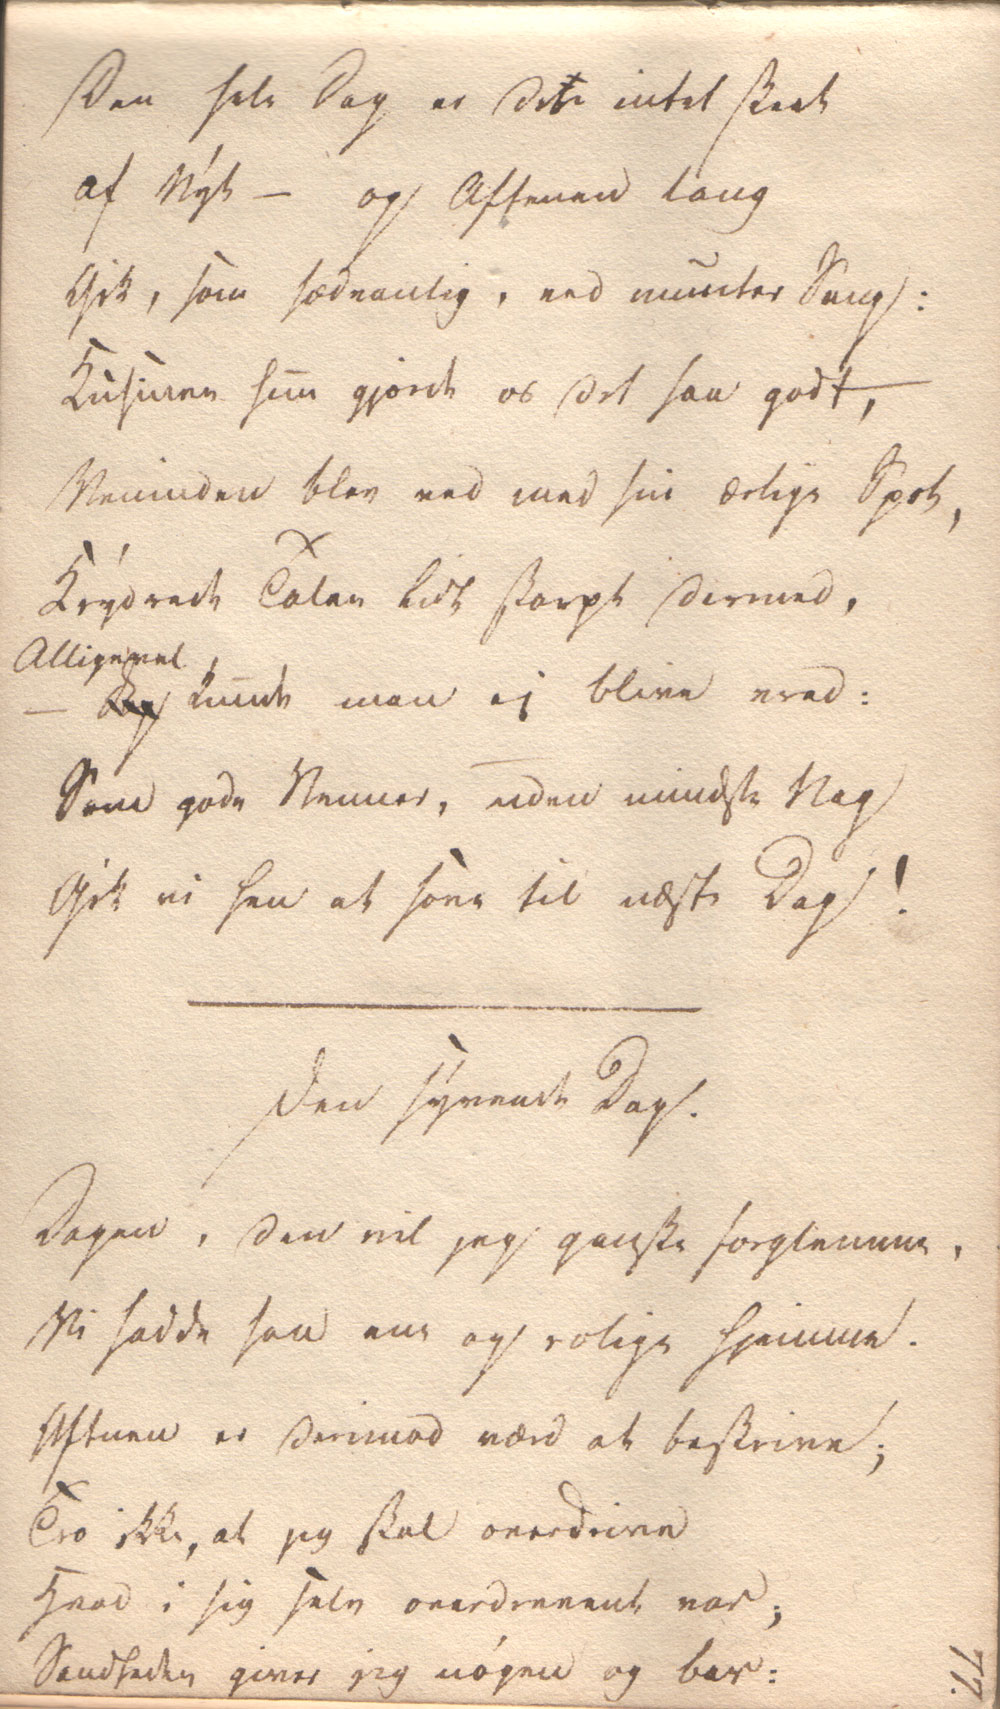 Den hele Dag er der intet skeet
af Nyt — og Aftenen lang
Gik, som sædvanlig, ved munter Sang:
Kusinen hun gjorde os det saa godt,
Veninden blev ved med sin ærlige Spot,
Krydrede Talen lidt skarpt dermed,
Alligevel,
— Dog kunde man ej blive vred:
Som gode Venner, uden mindste Nag
Gik vi hen at sove til næste Dag!
Den syvende Dag.
Dagen, den vil jeg ganske forglemme,
Vi sadde saa ene og rolige hjemme.
Aftnen er derimod værd at beskrive;
Tro ikke, at jeg skal overdrive
Hvad i sig selv overdrevent var;
Sandheden giver jeg nógen og bar:
77.